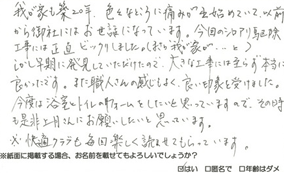 我が家も築20年、色々などうに痛みが出始めていて、以前
から御社にはお世話になっています。今回のシロアリ駆除
工事には正直ビックリしました。(まさか我が家が…と)
しかし早期に発見していただけたので、大きな工事には至らず本当に
良かったです。また職人さんの感じもよく、良い印象を受けました。
今度は浴室とトイレのリフォームをしたいと思っていますので、その時
も是非上月さんにお願いしたいと思っています。
☆快適クラブも毎回楽しく読ませてもらっています。
※紙面に掲載する場合、お名前を載せてもよろしいでしょうか?
☑はい □匿名で □年齢はダメ